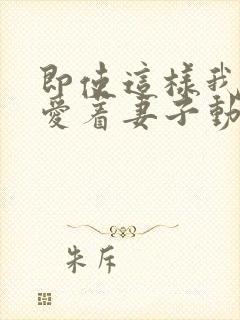 即使這樣我
愛着妻子動
朱斥